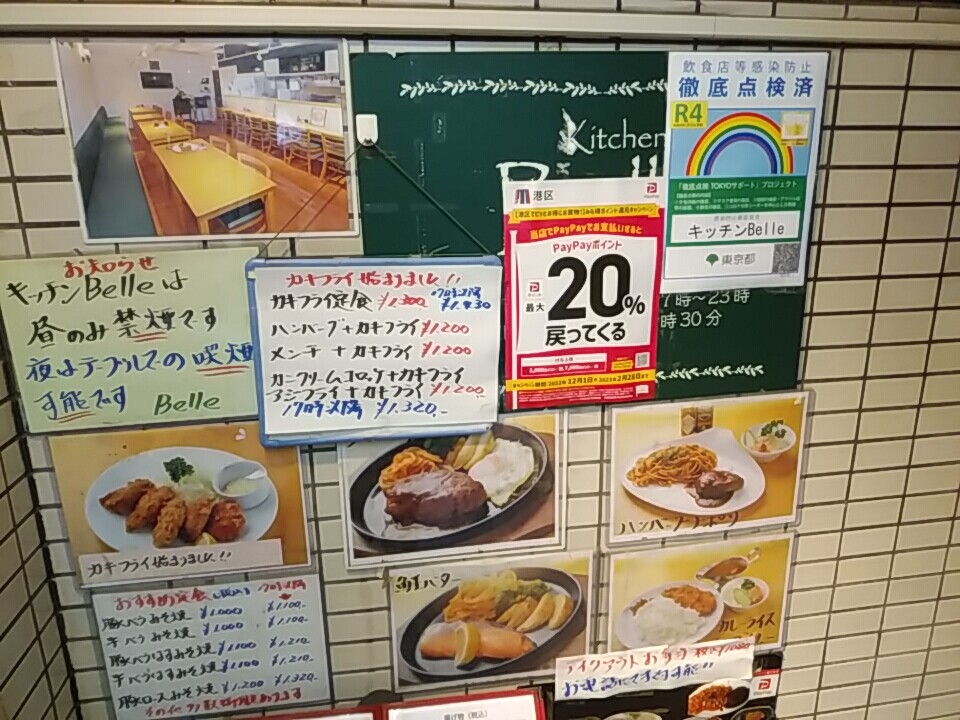 Kitchen
飲食店等感染防止
徹底点検済
R4
「徹底点検 TOKYOサポート」プロジェクト
キッチンBelle
東京都
7時〜23時
時30分
港区
PayPay
当店でPayPayでお支払いすると
PayPayポイント
最大20%
戻ってくる
キャンペーン期間 2022年12月1日▶2023年2月28日まで
お知らせ
キッチンBelleは
昼のみ禁煙です
夜はテーブルでの喫煙
可能です Belle
カキフライ始りました!!
カキフライ定食 ¥1.300
ハンバーグ+カキフライ ¥1.200
メンチ+カキフライ ¥1.200
カニクリームコロッケ+カキフライ
アジフライ+カキフライ ¥1.200
17時以降 ¥1.320.-
カキフライ始りました!!
おすすめ定食(税込) 17時以降
豚バラみそ焼 ¥1.000 ¥1.100-
牛バラみそ焼 ¥1.000 ¥1.100-
¥1.100 ¥1.210-
¥1.100 ¥1.210-
豚ロースみそ焼 ¥1.200 ¥1.320.
バター
カレーライス
テイクアウト
PayPay
揚げ物(税込)